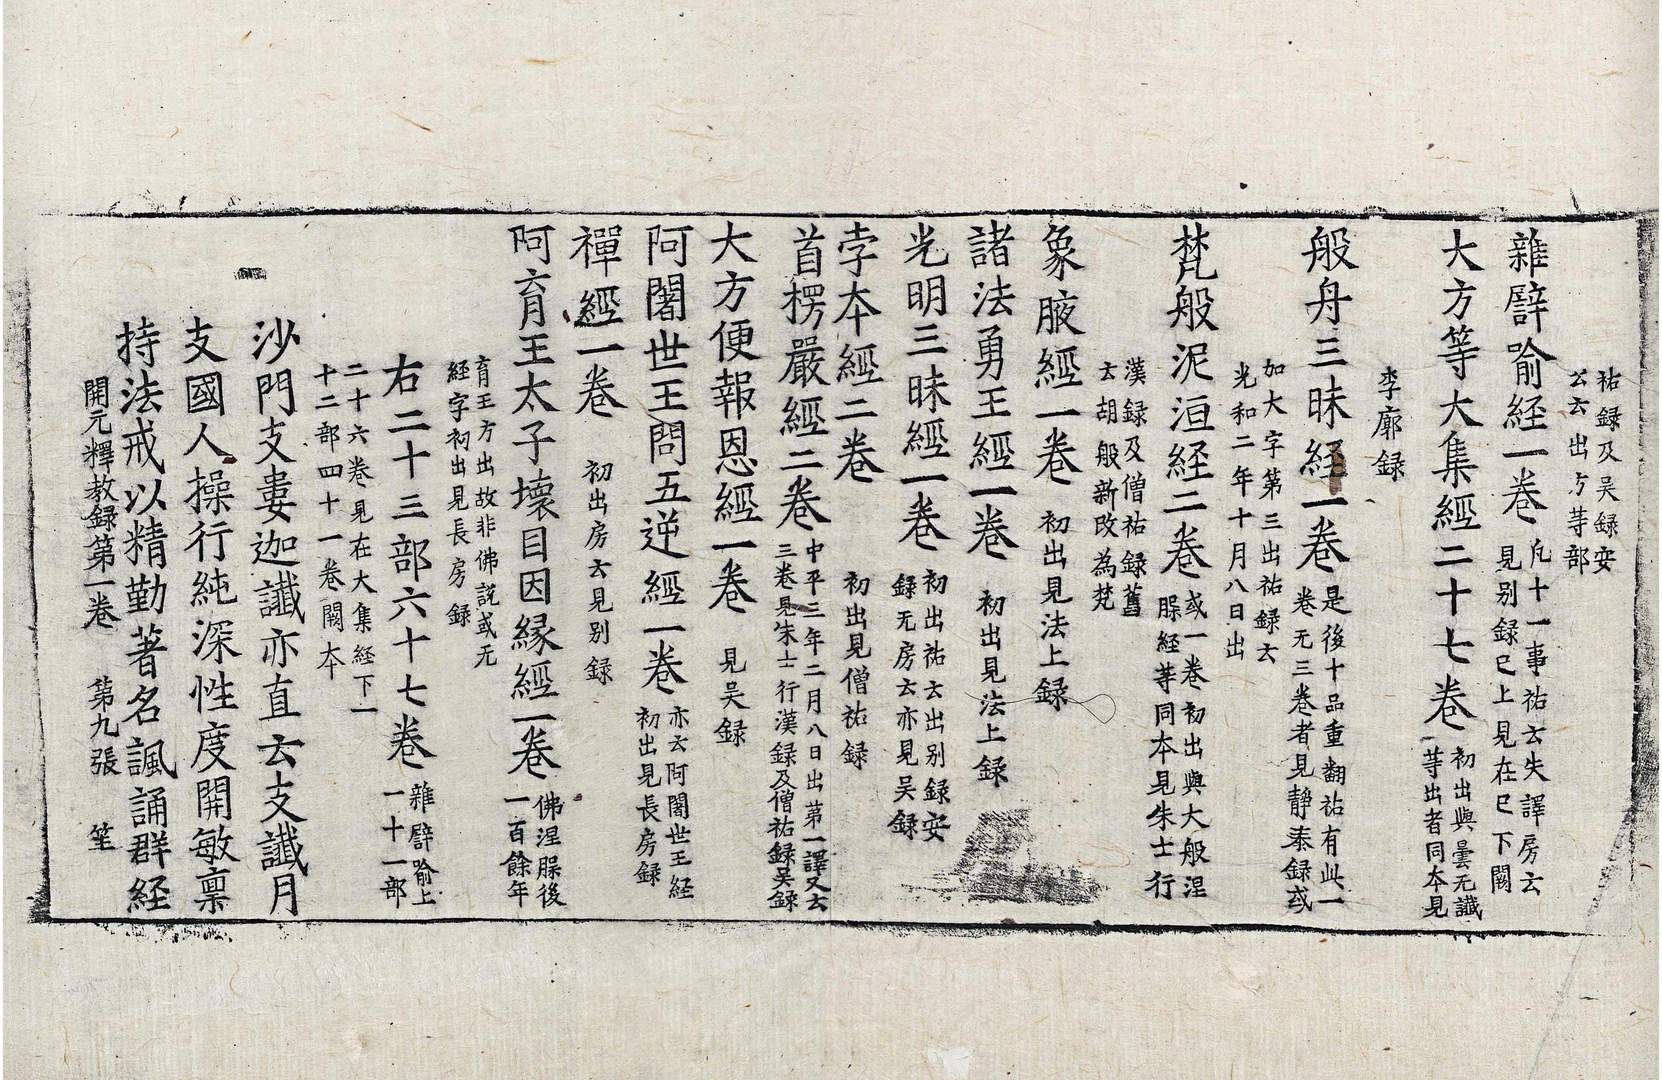 祐録及吴録安
公云出方等部
雜譬喻経一卷
凡十一事祐云失譯房云
見别録已上見在已下闕
大方等大集經二十七卷
初出與曇无讖
等出者同本見
李廓録
般舟三昧経一卷
是後十品重翻祐有此一
卷无三卷者見静泰録或
加大字第三出祐録云
光和二年十月八日出
梵般泥洹経二卷
或一卷初出與大般涅
脲経等同本見朱士行
漢録及僧祐録舊
云胡般新改為梵
象腋經一卷
初出見法上録
諸法勇王經一卷
初出見法上録
光明三昧經一卷
初出祐云出别録安
録无房云亦見吴録
孛本經二卷
初出見僧祐録
首楞嚴經二卷
中平三年二月八日出第一譯又云
三卷見朱士行漢録及僧祐録吴録
大方便報恩經一卷
見吴録
阿闍世王問五逆經一卷
亦云阿闍世王経
初出見長房録
禪經一卷
初出房云見别録
阿育王太子壞目因緣經一卷
佛涅脲後
一百餘年
育王方出故非佛説或无
経字初出見長房録
右二十三部六十七卷
雜譬喻上
一十一部
二十六卷見在大集経下一
十二部四十一卷闕本
沙門支婁迦讖亦直云支讖月
支國人操行純深性度開敏稟
持法戒以精勤著名諷誦群経
開元釋教録第一卷 第九張 笙